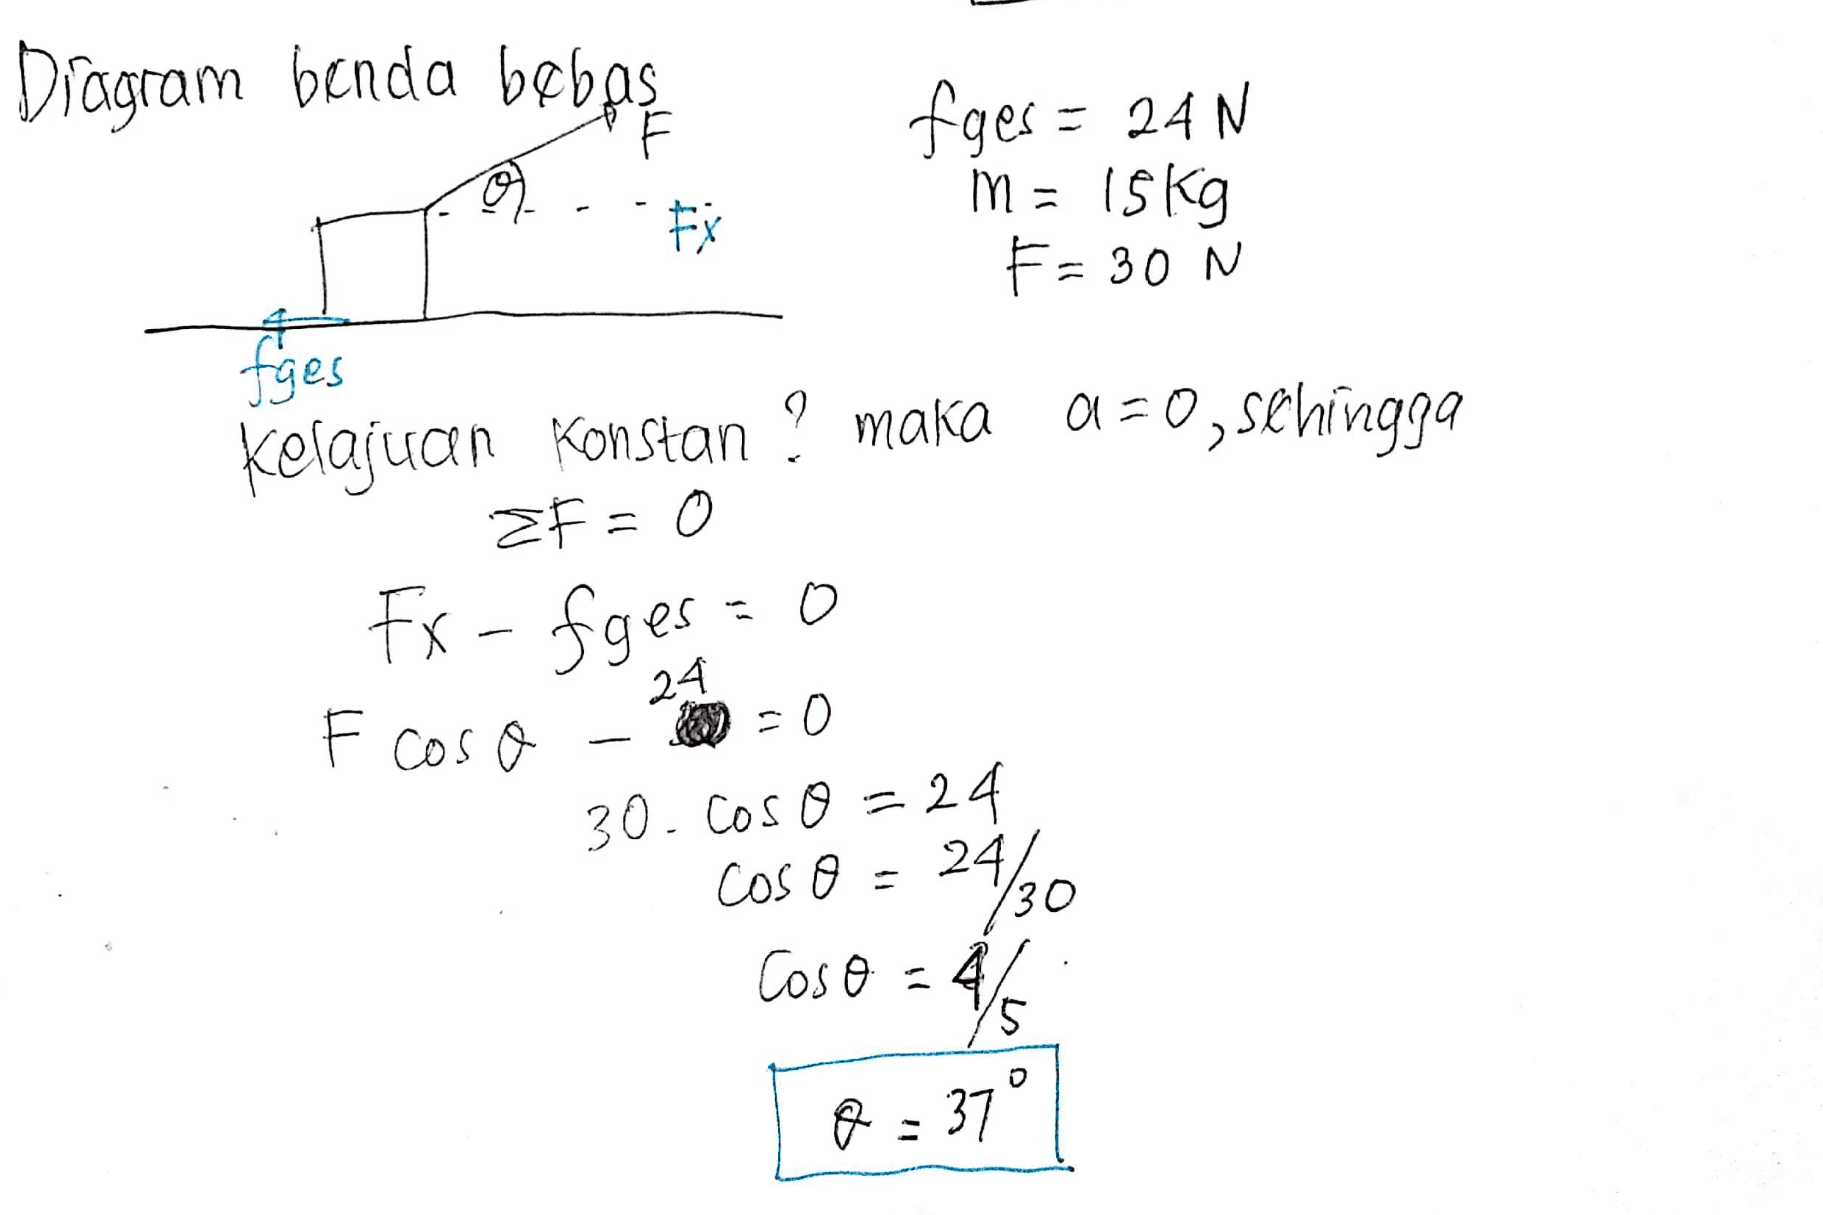 Diagram benda bebas
F
θ
Fx
fges
fges = 24 N
m = 15 kg
F = 30 N
Kelajuan konstan ? maka a = 0, sehingga
ΣF = 0
Fx - fges = 0
F cos θ - 24 = 0
30. cos θ = 24
cos θ = 24/30
Cos θ = 4/5
θ = 37°